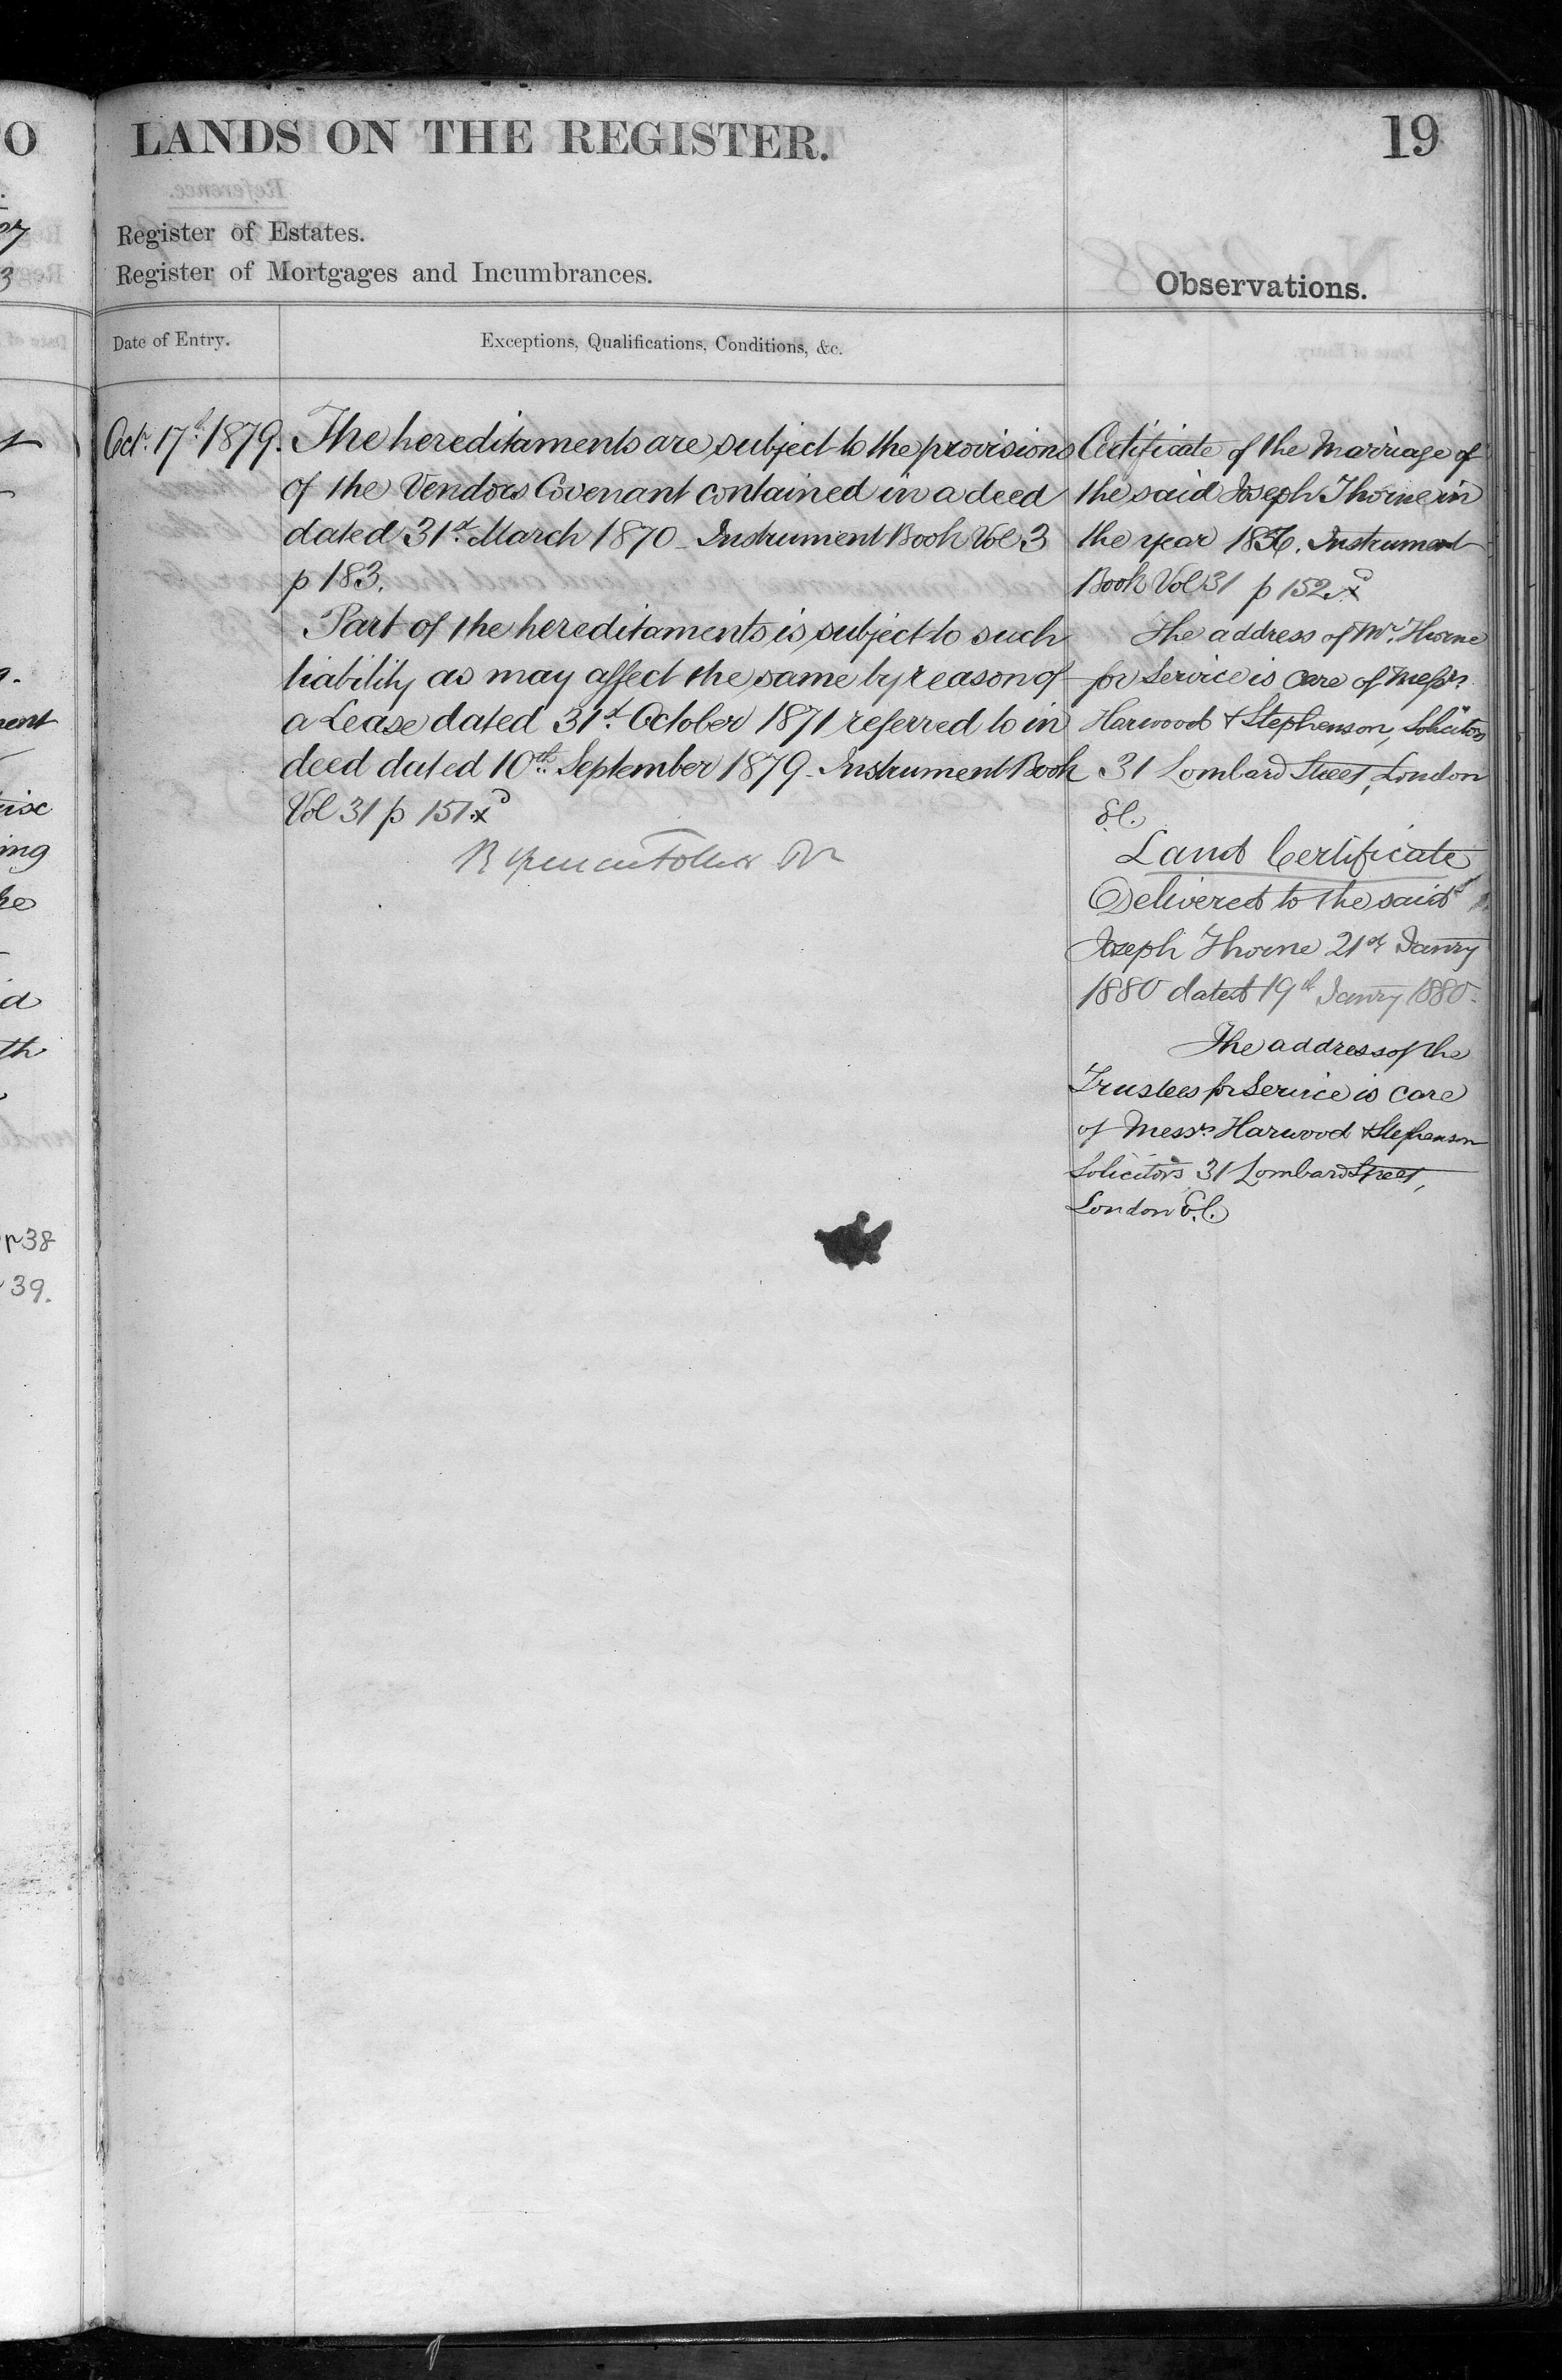 LANDS ON THE REGISTER.
19
Register of Estates.
Register of Mortgages and Incumbrances.
Observations.
Date of Entry.
Exceptions, Qualifications, Conditions, &c.
Octr. 17th 1879.
The hereditaments are subject to the provisions
of the Vendors Covenant contained in a deed
dated 31st. March 1870 _ Instrument Book Vol 3
p 183.
Part of the hereditaments is subject to such
liability as may affect the same by reason of
a Lease dated 31st. October 1871 referred to in
deed dated 10th. September 1879 _ Instrument Book
Vol 31 p 151
Certificate of the Marriage of
the said Joseph Thorne in
the year 1856. Instrument
Book Vol 31 p 152
The address of Mr. Thorne
for Service is care of Messrs.
Harwood & Stephenson, Solicitors
31 Lombard Street, London
E.C.
Land Certificate
Delivered to the said
Joseph Thorne 21st Janry
1880 dated 19th Janry 1880.
The address of the
Trustees for Service is care
of Messrs. Harwood & Stephenson
Solicitors 31 Lombard Street,
London E.C.